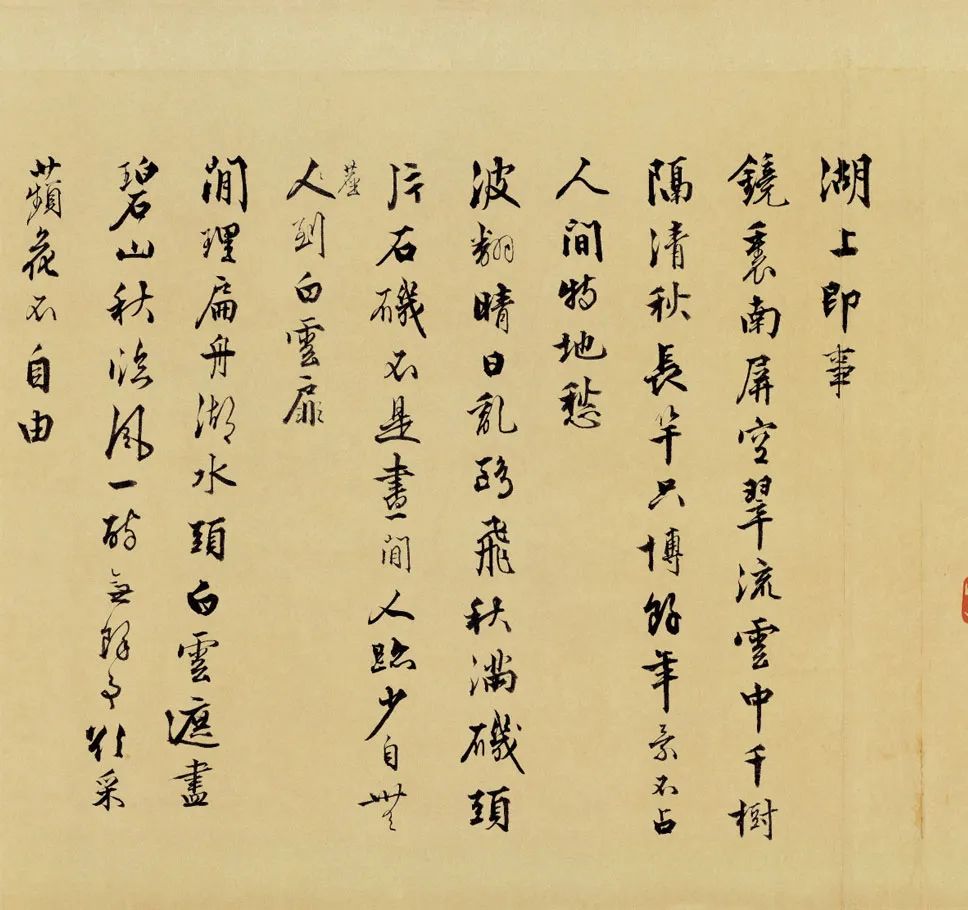 湖上即事
鏡裏南屏空翠流雲中千樹
隔清秋長竿只博餘年景不占
人間特地愁
波翻晴日亂鷗飛秋滿磯頭
片石磯不是畫閒人跡少自無
人到白雲扉
閒理扁舟湖水頭白雲遮盡
碧山秋臨風一酹無餘事欲采
蘋花不自由